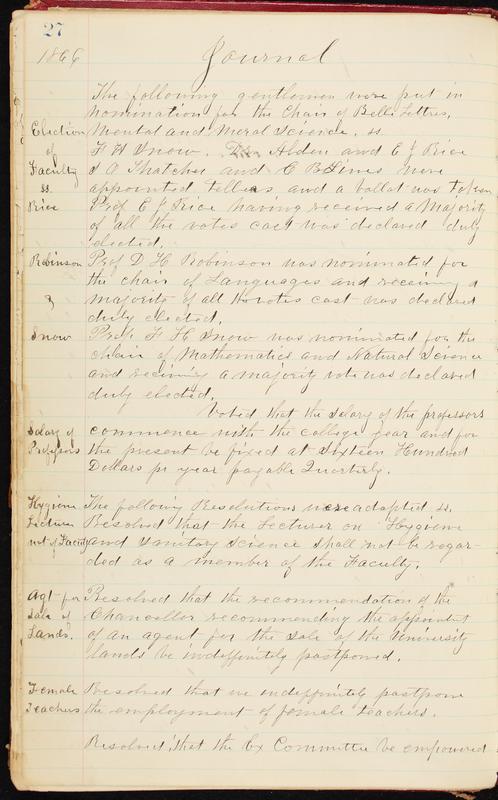 27
1866 Journal
The following gentlemen were put in
nomination for the Chair of Belles Lettres,
Election Mental and Moral Science. ss
of F H Snow. Alden and E J Rice
Faculty S O Thatcher and C B Lines were
ss. appointed tellers and a ballot was taken
Rice Prof E J Rice having received a majority
of all the votes cast was declared duly
elected.
Robinson Prof D H Robinson was nominated for
the chair of Languages and receiving a
& majority of all the votes cast was declared
duly elected.
Snow Prof. F H Snow was nominated for the
Chair of Mathematics and Natural Science
and receiving a majority vote was declared
duly elected.
Voted that the salary of the professors
Salary of commence with the college year and for
Professors the present be fixed at Sixteen Hundred
Dollars pr year payable Quarterly.
Hygiene The following Resolutions were adopted ss.
Lecturer Resolved that the Lecturer on Hygiene
not of Faculty and Sanitary Science shall not be regar-
ded as a member of the Faculty.
Agt for Resolved that the recommendation of the
Sale of Chancellor recommending the appointment
Lands. of an agent for the sale of the University
lands be indefinitely postponed.
Female Resolved that we indefinitely postpone
Teachers the employment of female teachers.
Resolved, that the Ex Committee be empowered